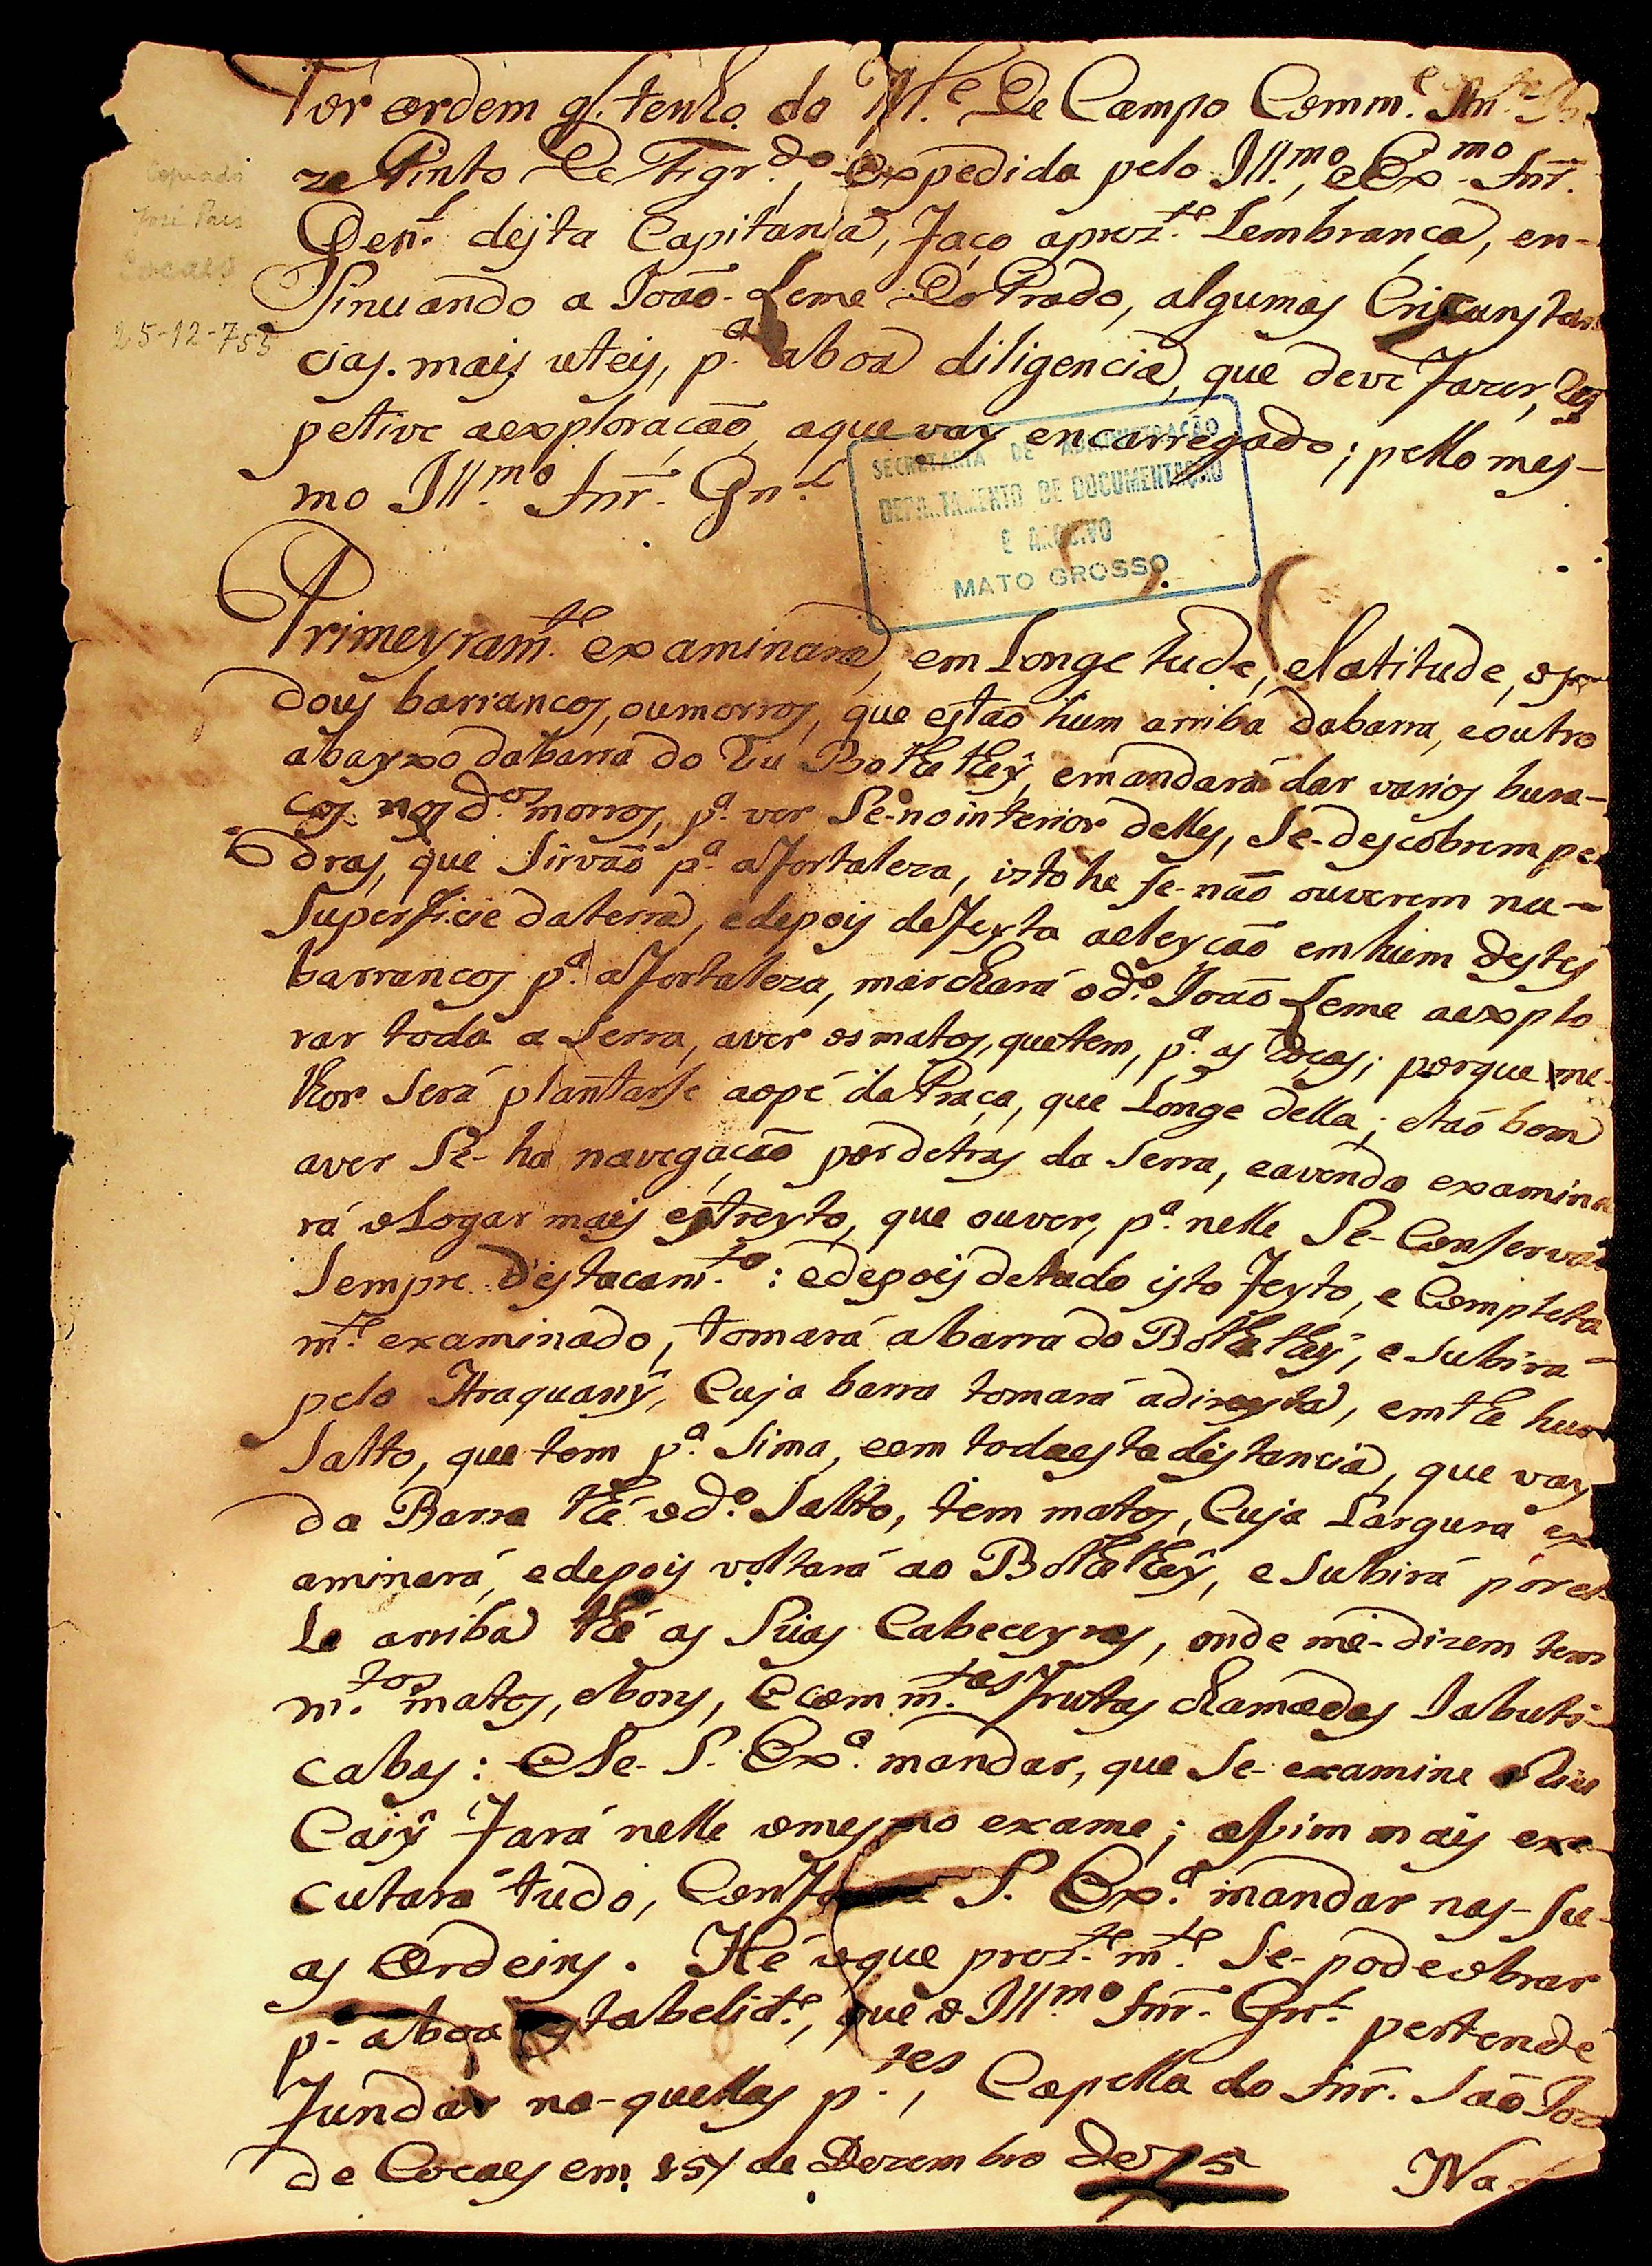 Por ordem q̃. tenho do M.e De Campo Comm.e An.to Jo
ze Pinto De Figr.do, expedida pelo Ill.mo, e Ex.mo Snr.
Gen.l desta Capitania, Faço aprez.te Lembrança, en-
Sinuando a João Leme Do Prado, algumas Circunstan
cias. mais uteis, p.a aboa diligencia, que deve Fazer, Res
petive aexploração, aque vay encarregado; pello mes-
mo Ill.mo Snr. Gn.l
Copiado
José Paes
Cocaes
25-12-755
SECRETARIA DE ADMINISTRAÇÃO
DEPARTAMENTO DE DOCUMENTAÇÃO
E ARQUIVO
MATO GROSSO
Primeyram.te examinará, em Longetude, eLatitude, os
dous barrancos, oumorros, que estão hum arriba dabarra, eoutro
abayxo dabarra do Bothethey, emandará dar varios bura-
cos nos d.os morros, p.a ver Se-nointerior delles, Se-descobrem pe
dras, que Sirvão p.a aFortaleza, istohe se-não ouverem na-
Superficie daterra, edepois deFeyta aeleyção emhum destes
barrancos p.a aFortaleza, marchará od.o João Leme aexplo
rar toda a Serra, aver osmatos, quetem, p.a as Roças; porque me-
lhor Será plantarse aopé daPraça, que Longe della; etão bem
aver Se-ha navegação pordetras da Serra, eavendo examina
rá oLogar mais estreyto, que ouver, p.a nelle Se-Conservar
Sempre Destacam.to: edepois detudo isto Feyto, e Completa
m.te examinado, tomará abarra do Bothethey, e Subirá
pelo Araquany, Cuja barra tomará adireyta, emthe hum
Salto, que tem p.a Sima, eem todaesta distancia, que vay
da Barra thé od.o Salto, tem matos, Cuja Largura ex
aminará, edepois voltará ao Bothethey, e Subirá porel
Le arriba thé as Suas Cabeceyras, onde me-dizem tem
m.tos matos, ebons, Ecom m.tas Frutas chamadas Jabuti-
cabas: ESe-S. Ex.a mandar, que Se-examine oRio
Caiy Fará nelle omesmo exame; asim mais exe
cutará tudo, S. Ex.a mandar nas-Su-
as Ordeins. Hé oque prez.tem.te Se-podeobrar
p.a aboa estabelid.e, que o Ill.mo Snr. Gn.l pertende
Fundar na-quellas p.tes, Capella do Snr. São Joz
de Cocaes em 25 de Dezembro de